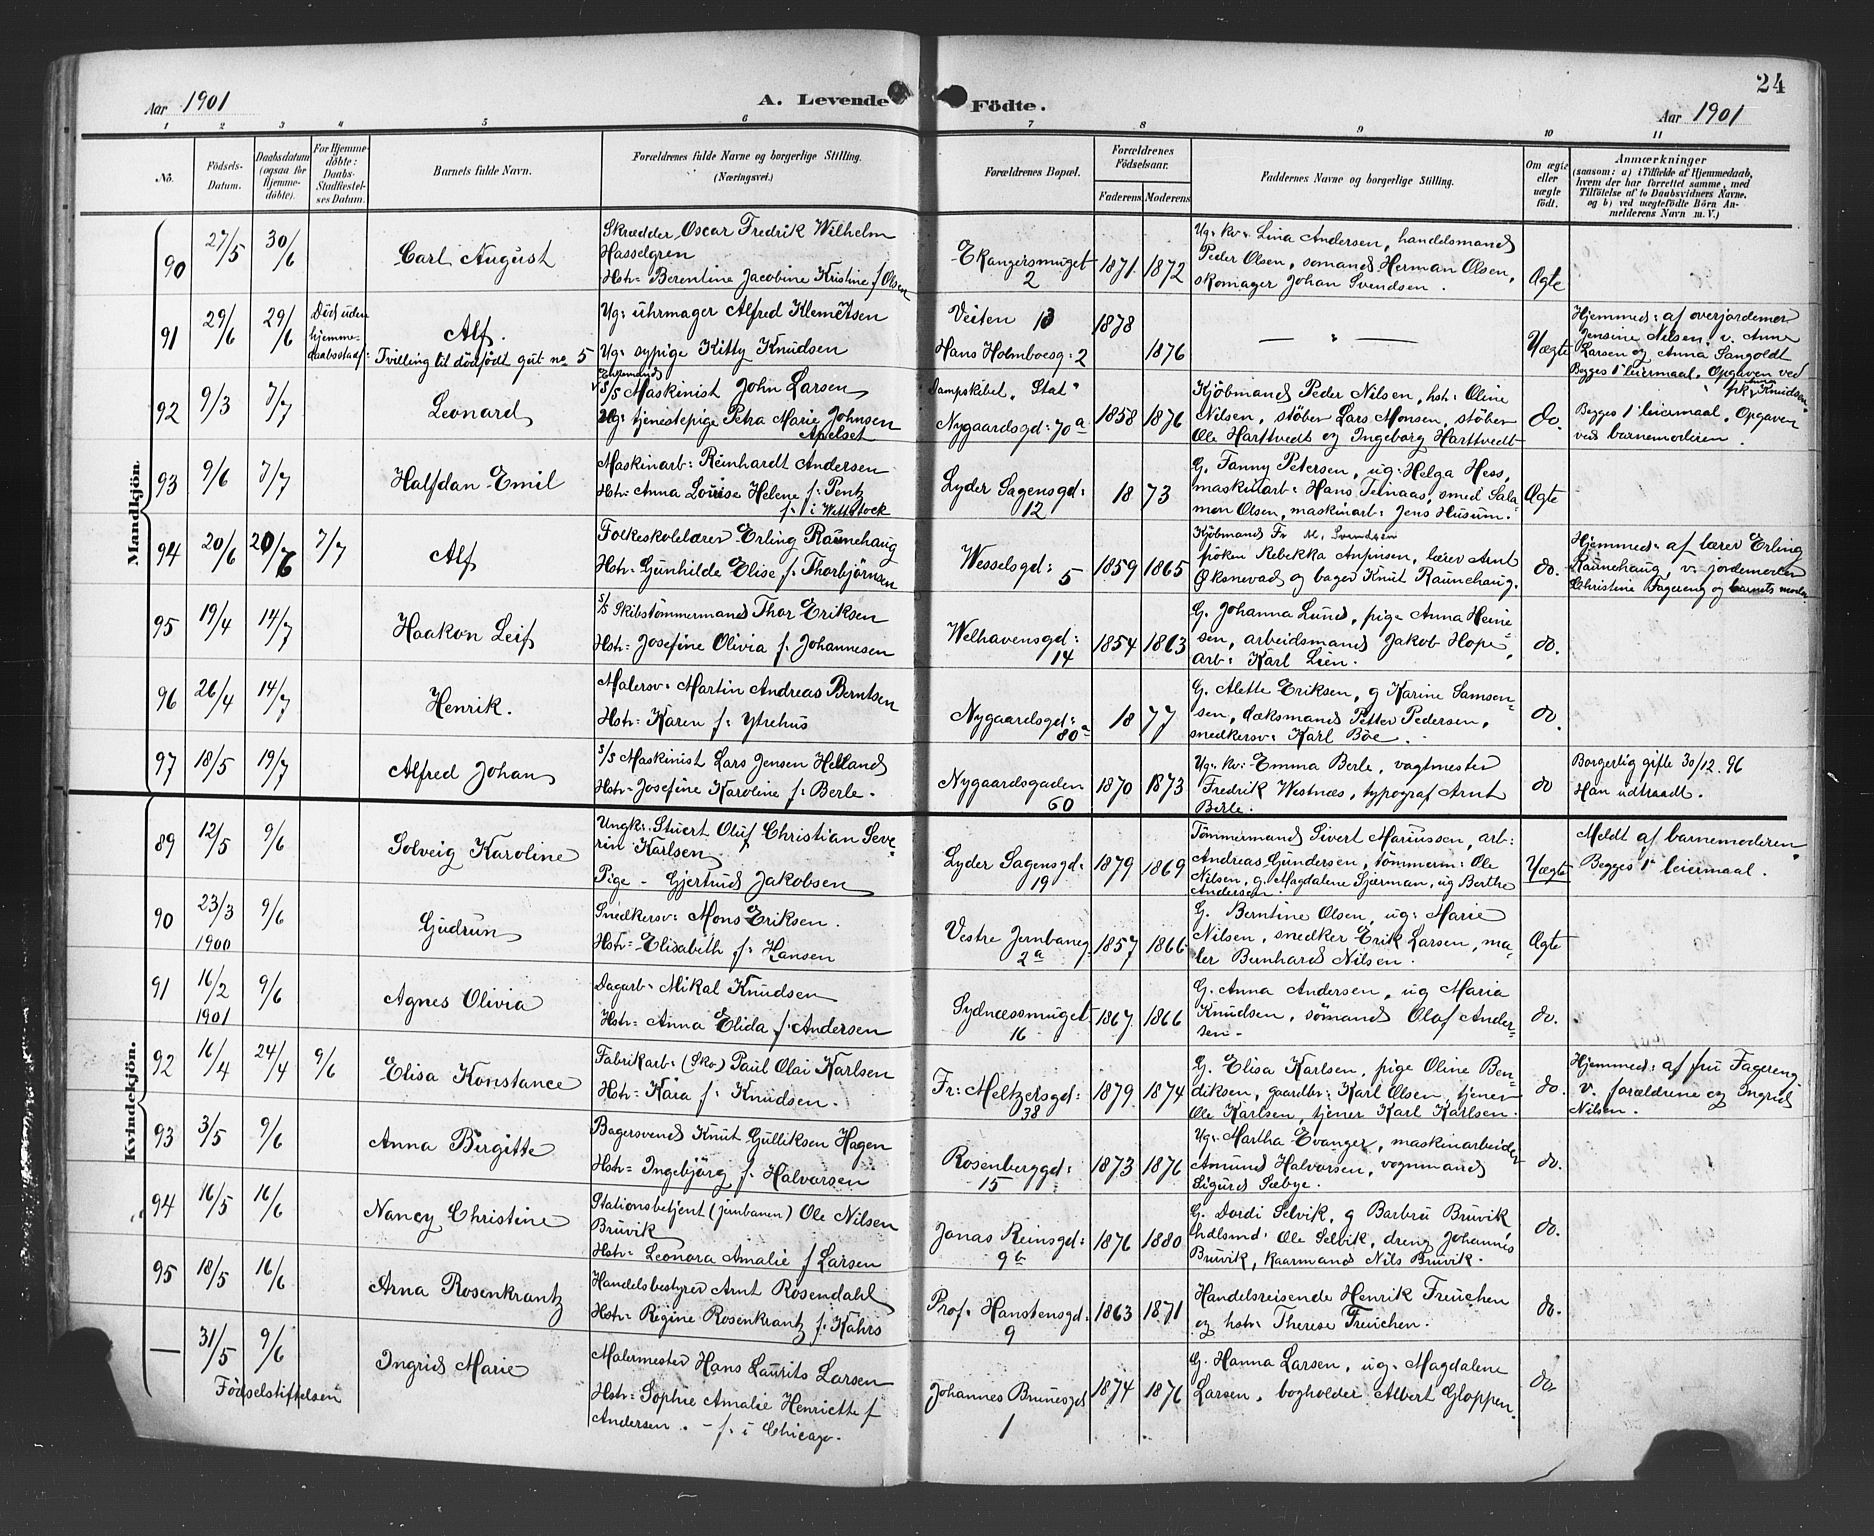 24
Aar 1901
A. Levende Födte.
Aar 1901
1 2 3 4 5 6 7 8 9 10 11
No.
Födsels-Datum.
Daabsdatum (ogsaa for Hjemme-döbte).
For Hjemme-döbte: Daabs-Stadfæstel-ses Datum.
Barnets fulde Navn.
Forældrenes fulde Navne og borgerlige Stilling. (Næringsvei.)
Forældrenes Bopæl.
Forældrenes Födselsaar.
Faderens Moderens
Faddernes Navne og borgerlige Stilling.
Om ægte eller uægte födt.
Anmærkninger
(saasom: a) i Tilfælde af Hjemmedaab, hvem der har forrettet samme, med Tilföielse af to Daabsvidners Navne, og b) ved uægtefödte Börn An-melderens Navn m. V.)
Mandkjön.
90 27/5 30/6 Carl August
Skrædder Oscar Fredrik Wilhelm
Hasselgren
Hstr: Berentine Jacobine Kristine f Olsen
Ekangersmuget 2
1871 1872
Ug: kv: Lina Andersen, handelsmand
Peder Olsen, sömand Herman Olsen,
skomager Johan Svendsen.
Ægte
91 29/6 29/6 Död uden hjemme-daabsstadf:
Alf.
Tvilling til dödfödt gut no 5
Ug: uhrmager Alfred Klemetsen
Ug: sypige Kitty Knudsen
Veiten 13
Hans Holmboesg: 2
1878
1876
— " —
Uægte
Hjemmed: af overjordemor
Jensine Nilsen, v. Anne
Larsen og Anna Sangoldt
Begges 1' leiermaal. Opgaven ved
92 9/3 7/7 Leonard
Enkemand
S/S Maskinist John Larsen
Ug: tjenestepige Petra Marie Johnsen
Apelset
Dampskibet "Stat"
Nygaardsgd: 70a
1858 1876
Kjöbmand Peder Nilsen, hst: Oline
Nilsen, stöber Lars Monsen, stöber
Ole Harttvedt og Ingeborg Harttvedt
do.
Begges 1' leiermaal. Opgaven
ved barnemoderen.
93 9/6 7/7 Halfdan Emil
Maskinarb: Reinhardt Andersen
Hstr: Anna Louise Helene f: Pentz
f: i Wittstock
Lyder Sagensgd: 12
1873
G. Fanny Petersen, ug: Helga Hess,
maskinarb: Hans Teinaas, smed Sala
mon Olsen, maskinarb: Jens Husum.
Ægte
94 20/6 20/6 7/7 Alf
Folkeskolelærer Erling Raunehaug
Hstr: Gunhilde Elise f: Thorbjörnsen
Wesselsgd: 5
1859 1865
Kjöbmand Fr. M. Svendsen
fröken Rebekka Anfinsen, lærer Arnt
Öksnevad og bager Knut Raunehaug.
do.
Hjemmed: af lærer Erling
Raunehaug, v. jordemoder
Christine Fagereng og barnets moder
95 19/4 14/7 Haakon Leif
S/S Skibstömmermand Thor Eriksen
Hstr: Josefine Olivia f: Johannesen
Welhavensgd: 14
1854 1863
G. Johanna Lund, pige Anna Heine
sen, arbeidsmand Jakob Hope,
arb: Karl Lien.
do.
96 26/4 14/7 Henrik.
Malersv: Martin Andreas Berntsen
Hstr: Karen f: Ytrehus
Nygaardsgd: 80a
1877
G. Alette Eriksen, g Karine Samsen-
sen, dæksmand Petter Pedersen,
snedkersv: Karl Böe.
do.
97 18/5 19/7 Alfred Johan
S/S Maskinist Lars Jensen Helland
Hstr: Josefine Karoline f: Berle.
Nygaardsgaden 60
1870 1873
Ug: kv: Emma Berle, vagtmester
Fredrik Westnæs, typograf Arnt
Berle.
do
Borgerlig gifte 30/12. 96
Han udtraadt.
Kvindekjön.
89 12/5 9/6 Solveig Karoline
Ungk: Stuert Oluf Christian Seve-
rin Karlsen
Pige - Gjertrud Jakobsen
Lyder Sagensgd: 19
1879 1869
Tömmermand Sivert Mariussen, arb:
Andreas Gundersen, tömmerm: Ole
Nilsen, g. Magdalene Sjerman, ug Berthe
Andersen.
Uægte
Meldt af barnemoderen.
Begges 1' leiermaal.
90 23/3 1900 9/6 Gudrun
Snedkersv: Mons Eriksen.
Hstr: Elisabeth f: Hansen
Vestre Jernbaneg 2a
1857 1866
G. Berntine Olsen, ug: Marie
Nilsen, snedker Erik Larsen, ma-
ler Bernhard Nilsen.
Ægte
91 16/2 1901 9/6 Agnes Olivia
Dagarb: Mikal Knudsen
Hstr: Anna Elida f: Andersen
Sydnæssmuget 16
1867 1866
G. Anna Andersen, ug Maria
Knudsen, sömand Olaf Ander-
sen.
do.
92 16/4 24/4 9/6 Elisa Konstance
Fabrikarb: (Sko) Paul Olai Karlsen
Hstr: Kára f: Knudsen.
Fr: Meltzersgd: 38
1879 1874
G. Elisa Karlsen, pige Oline Ben-
diksen, gaardbr: Karl Olsen, tjener
Ole Karlsen, tjener Karl Karlsen.
do.
Hjemmed: af fru Fagereng
v. forældrene og Ingrid
Nilsen.
93 3/5 9/6 Anna Birgitte
Bagersvend Knut Gulliksen Hagen
Hstr: Ingebjörg f: Halvorsen
Rosenberggd: 15
1873 1876
Ug: Martha Evanger, maskinarbeider
Amund Halvorsen, vognmand
Sigurd Sæbye.
do.
94 16/5 16/6 Nancy Christine
Stationsbetjent (jernbanen) Ole Nilsen
Bruvik
Hstr: Leonora Amalie f Larsen
Jonas Reinsgd: 9b
1876 1880
G. Dordi Selvik, g Barbru Bruvik
hdlsmd: Ole Selvik, dreng Johannes
Bruvik, kaarmand Nils Bruvik.
do.
95 18/5 16/6 Arna Rosenkrantz
Handelsbestyrer Arnt Rosendahl
Hstr: Regine Rosenkrantz f: Kahrs
Prof: Hanstensgd: 9
1863 1871
Handelsreisende Henrik Freuchen
og hstr: Therese Freuchen.
do.
— 31/5 9/6 Ingrid Marie
Födselstiftelsen
Malermester Hans Laurits Larsen
Hstr: Sophie Amalie Henriette f
Andersen. - f: i Chicago.
Johannes Brunesgd 1
1874 1876
G. Hanna Larsen, ug: Magdalene
Larsen, bogholder Albert Gloppen.
do